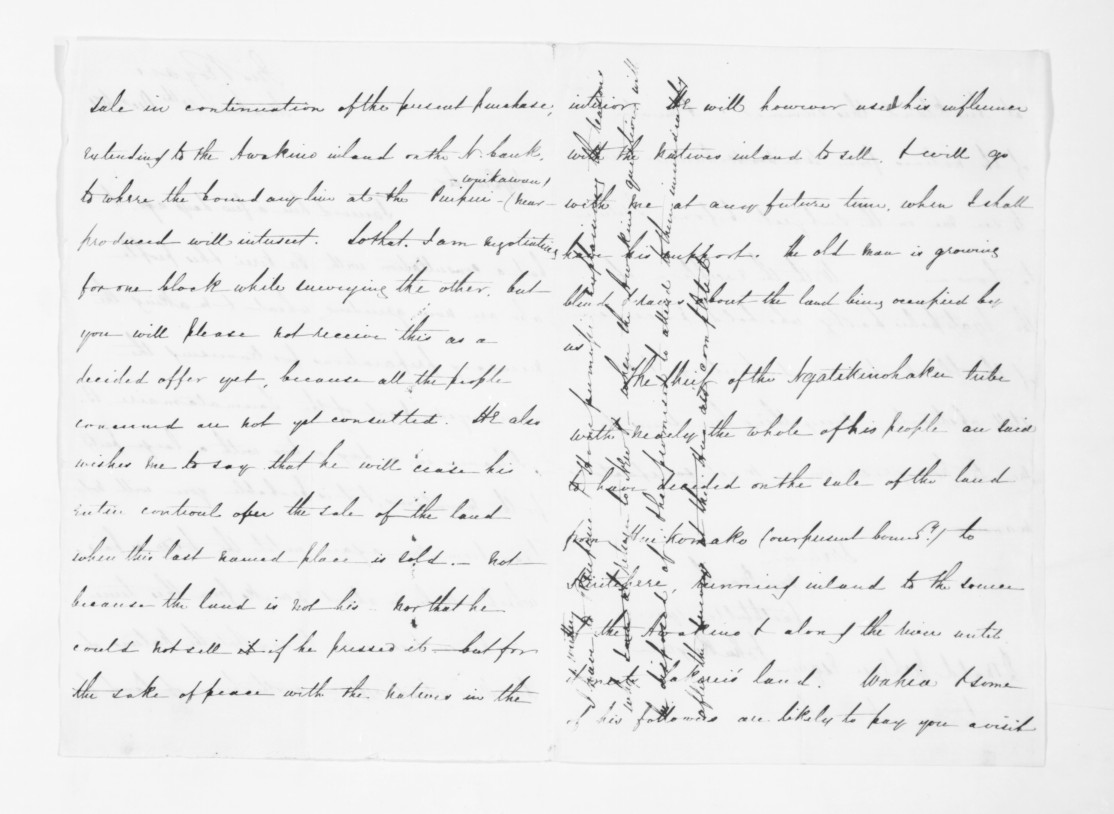 sale in continuation of the present purchase,
extending to the Awakino inland on the N. bank.
to where the boundary line at the Puipui - (near
produced will intersect. So that I am negotiating
for one block while surveying the other, but
you will please not receive this as a
decided offer yet, because all the people
concerned are not yet consulted. He also
wishes me to say that he will cease his
entire controul over the sale of the land
when this last named place is sold. - Not
because the land is not his nor that he
could not sell it if he pressed it - but for
the sake of peace with the natives in the
interior. He will however use his influence
with the natives inland to sell. & will go
with me at any future time, when I shall
have his support. The old man is growing
blind & raves about the land being occupied by
us
The Chief of the Ngatikinohaku tribe
with nearly the whole of his people are said
to have decided on the sale of the land
from Huikomako (our present bound.y) to
, running inland to the source
of the Awakino & along the river until
it meets Takerei's land. Wahia & some
of his followers are likely to pay you a visit
I have to
when the Awakino question will
be disposed of that promises to attend to him immediately
after the surveys at this are completed